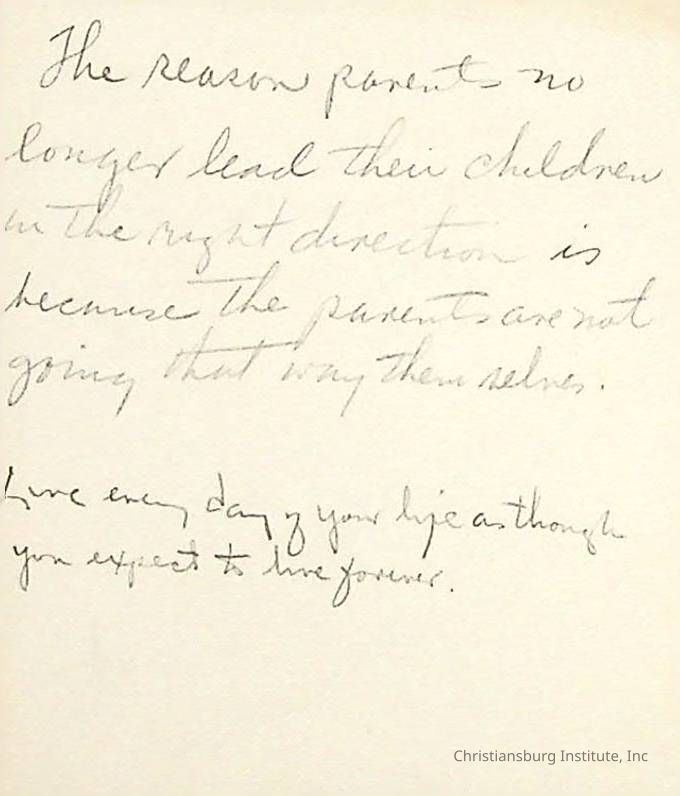 The reason parents no
longer lead their children
in the right direction is
because the parents are not
going that way themselves.
Live every day of your life as though
you expect to live forever.
Christiansburg Institute, Inc